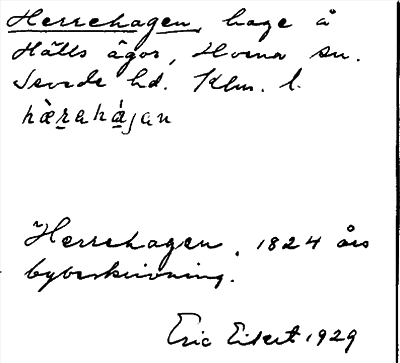 Herrehagen, hage å
Hälls ägor, Hvena sn.
Sevede hd. Klm. l.
hæ̀ra há̱jan
Herrehagen. 1824 års
bybeskrivning.
Eric Eilert 1929